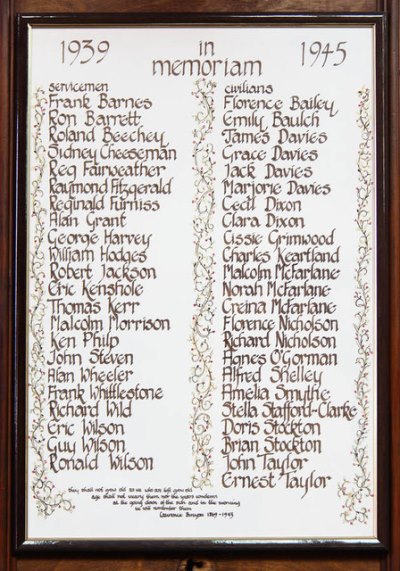 1939 in memoriam 1945
servicemen
Frank Barnes
Ron Barrett
Roland Beechey
Sidney Cheeseman
Reg Fairweather
Raymond Fitzgerald
Reginald Furniss
Alan Grant
George Harvey
William Hodges
Robert Jackson
Eric Kenshole
Thomas Kerr
Malcolm Morrison
Ken Philp
John Steven
Alan Wheeler
Frank Whittlestone
Richard Wild
Eric Wilson
Guy Wilson
Ronald Wilson
civilians
Florence Bailey
Emily Baulch
James Davies
Grace Davies
Jack Davies
Marjorie Davies
Cecil Dixon
Clara Dixon
Cissie Grimwood
Charles Keartland
Malcolm McFarlane
Norah McFarlane
Creina McFarlane
Florence Nicholson
Richard Nicholson
Agnes O'Gorman
Alfred Shelley
Amelia Smythe
Stella Stafford-Clarke
Doris Stockton
Brian Stockton
John Taylor
Ernest Taylor
they shall not grow old as we who are left grow old
age shall not weary them nor the years condemn
at the going down of the sun and in the morning
we will remember them
Laurence Binyon 1869-1943